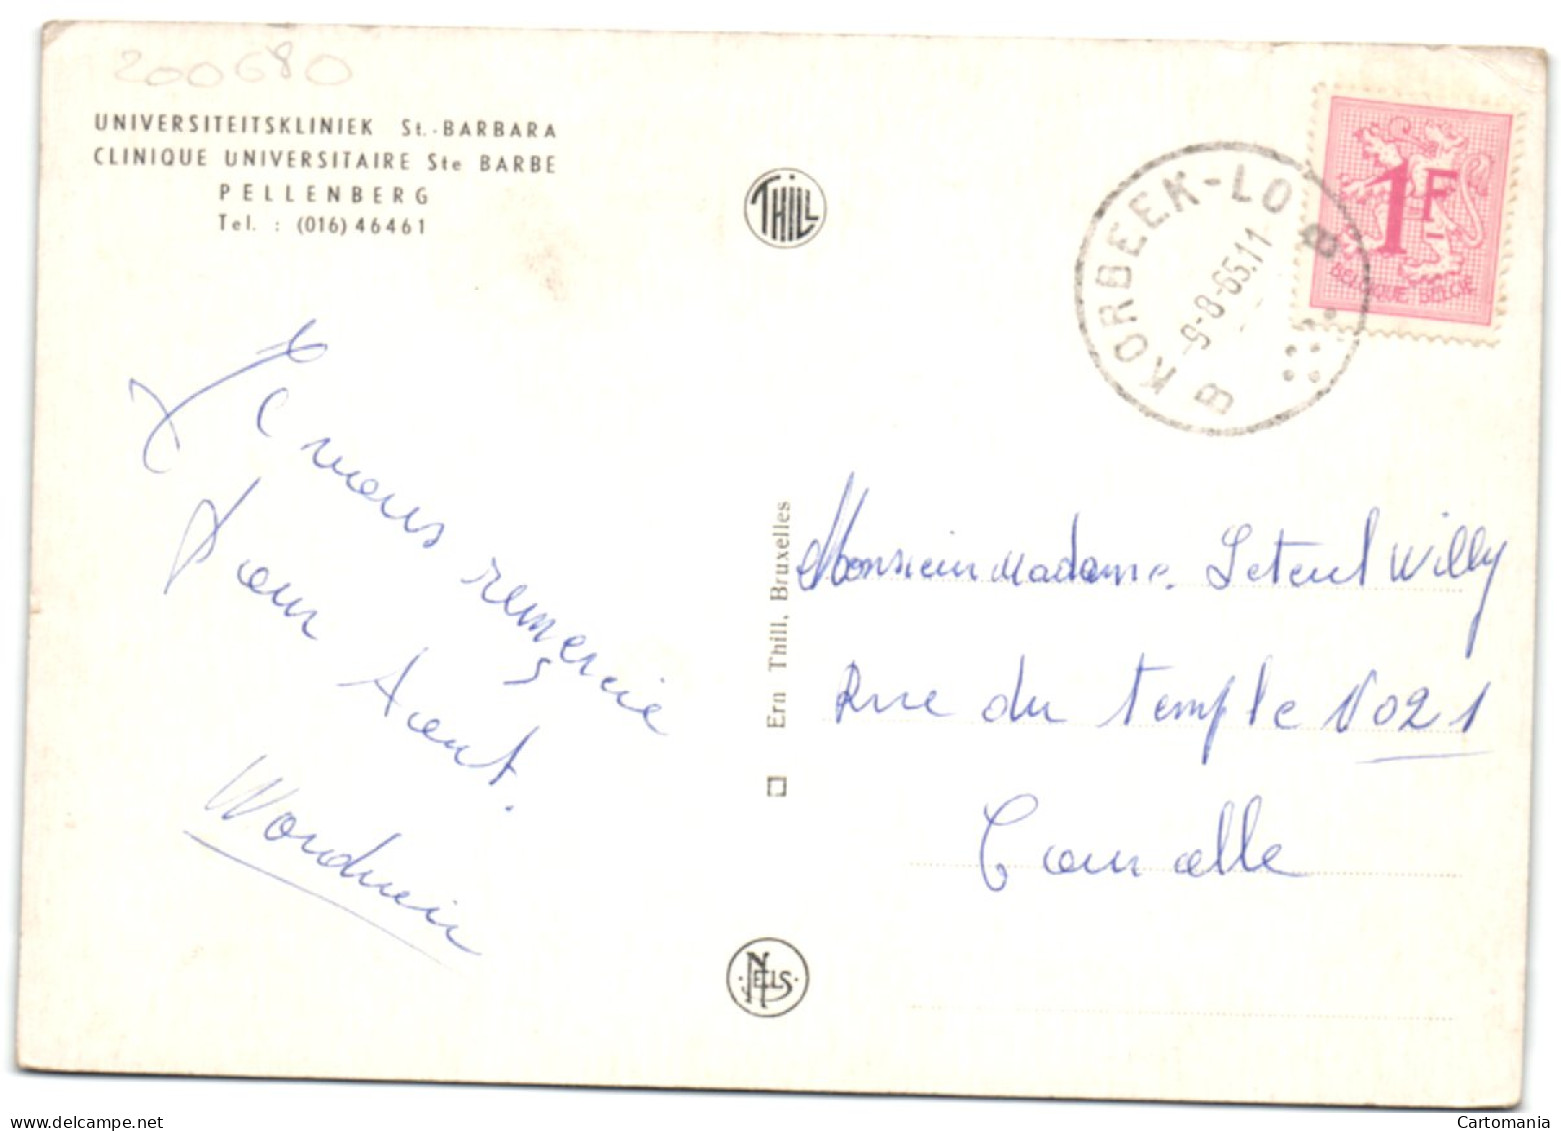 200680
UNIVERSITEITSKLINIEK St.-BARBARA
CLINIQUE UNIVERSITAIRE Ste BARBE
PELLENBERG
Tel. : (016) 46461
THILL
B KORBEEK-LO B
9-8-65.11
1F
BELGIQUE BELGIE
Je vous remercie
pour tout.
Ern Thill, Bruxelles
Monsieur Madame Willy
Rue du temple No 21
NELS
www.delcampe.net
Cartomania